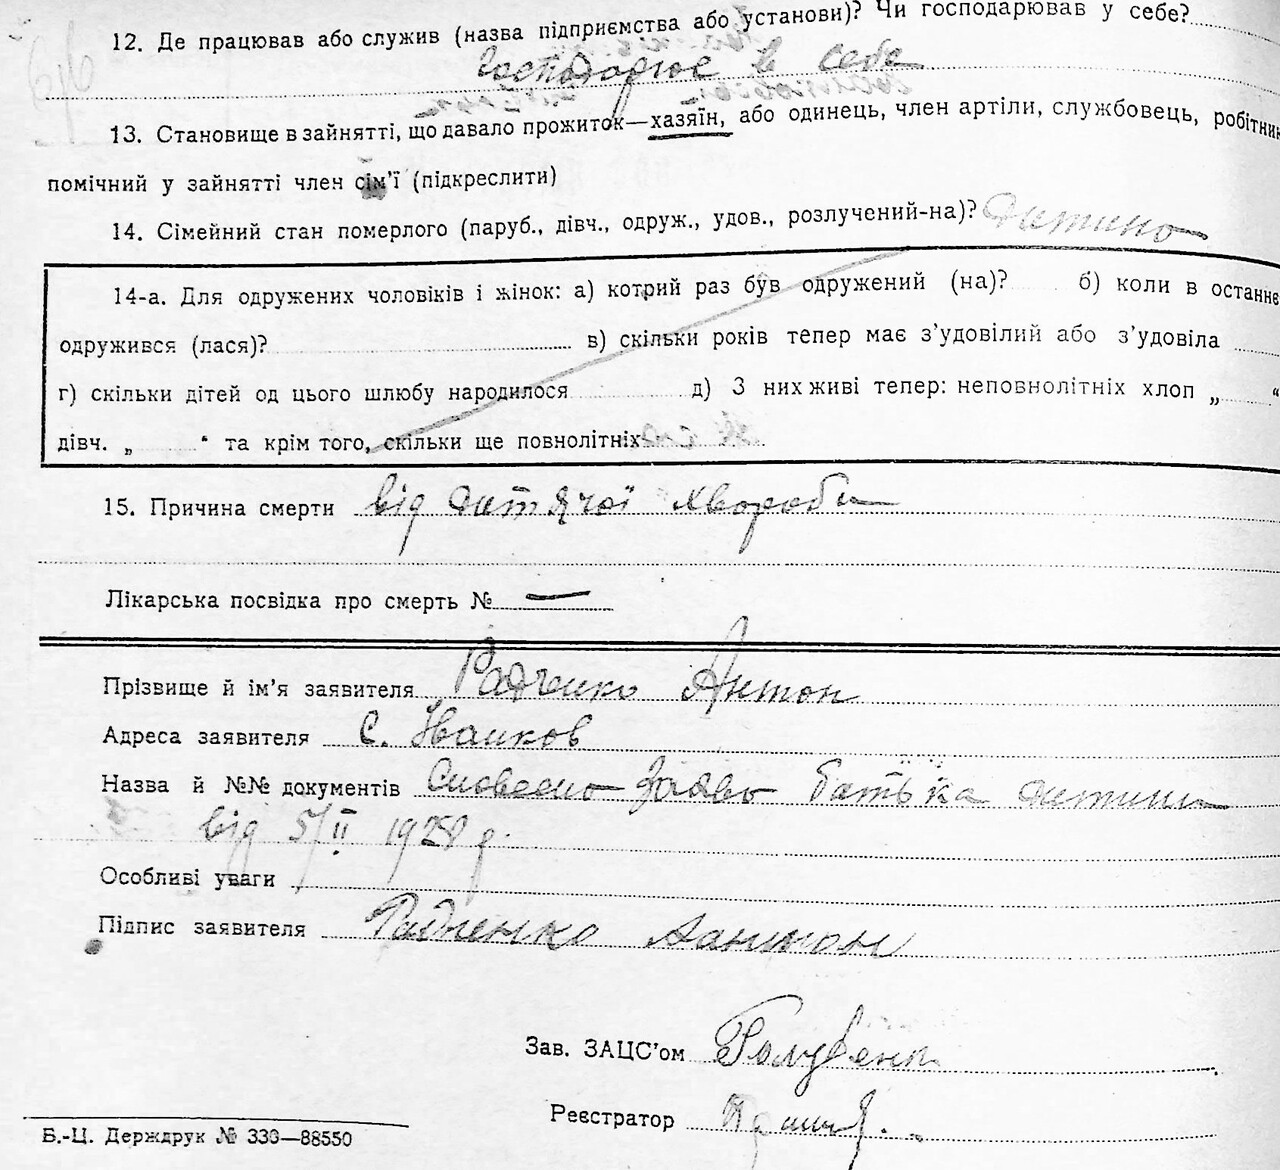 12. Де працював або служив (назва підприємства або установи)? Чи господарював у себе?
Господарює в себе
13. Становище в зайнятті, що давало прожиток—хазяїн, або одинець, член артіли, службовець, робітник
помічний у зайнятті член сім'ї (підкреслити)
14. Сімейний стан померлого (паруб., дівч., одруж., удов., розлучений-на)? Дитина
14-а. Для одружених чоловіків і жінок: а) котрий раз був одружений (на)? б) коли в останнє
одружився (лася)? в) скільки років тепер має з'удовілий або з'удовіла
г) скільки дітей од цього шлюбу народилося д) З них живі тепер: неповнолітніх хлоп „ “
дівч. „ “ та крім того, скільки ще повнолітніх
15. Причина смерти від дитячої хвороби
Лікарська посвідка про смерть № —
Прізвище й ім'я заявителя Радченко Антон
Адреса заявителя с. Іванков
Назва й №№ документів Словесно заяво батька дитини
від 5/II 1928 р.
Особливі уваги
Підпис заявителя Радченко Аантон
Зав. ЗАЦС'ом
Реєстратор
Б.-Ц. Держдрук № 333—88550